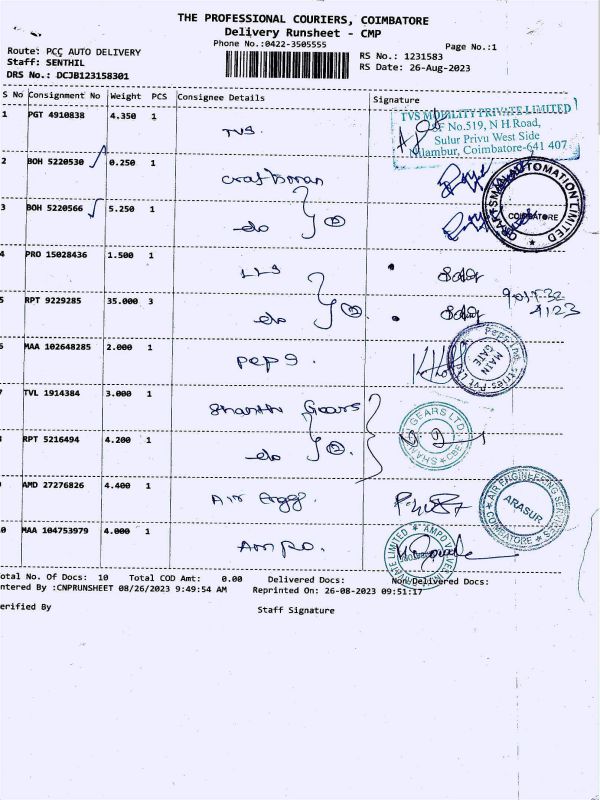 THE PROFESSIONAL COURIERS, COIMBATORE
Delivery Runsheet - CMP
Phone No.:0422-3505555
Page No.:1
Route: PCC AUTO DELIVERY
RS No.: 1231583
Staff: SENTHIL
RS Date: 26-Aug-2023
DRS No.: DCJB123158301
S No Consignment No Weight PCS Consignee Details Signature
1 PGT 4910838 4.350 1 TVS
TVS MOBILITY PRIVATE LIMITED
SF No.519, N H Road,
Sulur Privu West Side
Coimbatore-641 407
2 BOH 5220530 0.250 1 Craftsman
3 BOH 5220566 5.250 1 do ②
AUTOMATION LIMITED
COIMBATORE
4 PRO 15028436 1.500 1 LLS
5 RPT 9229285 35.000 3 do ②
6 MAA 102648285 2.000 1 Pepg.
MAIN
GATE
7 TVL 1914384 3.000 1 Shanthi Gears
8 RPT 5216494 4.200 1 do ②.
SHANTHI GEARS LTD
CBE
9 AMD 27276826 4.400 1 Air Engg.
AIR ENGINEERING SERVICES
ARASUR
COIMBATORE
10 MAA 104753979 4.000 1 Ampo.
Total No. Of Docs: 10 Total COD Amt: 0.00 Delivered Docs: Non-Delivered Docs:
Entered By :CNPRUNSHEET 08/26/2023 9:49:54 AM Reprinted On: 26-08-2023 09:51:17
Verified By Staff Signature